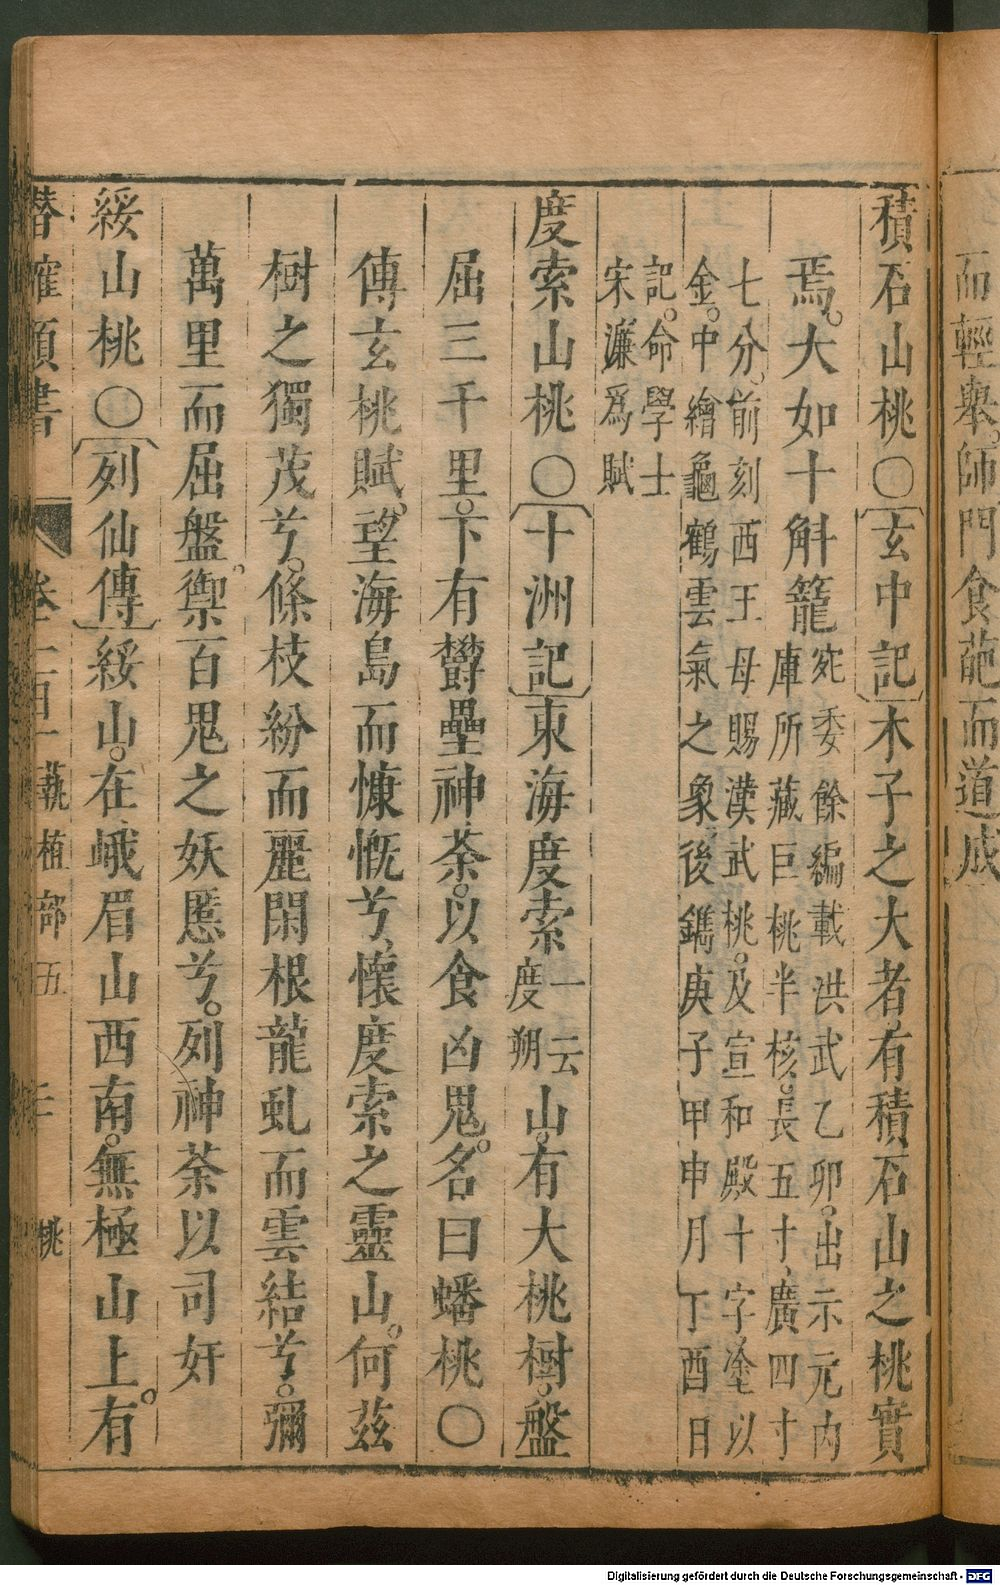 而輕舉。師門食葩而道成
積石山桃○〔玄中記〕木子之大者有積石山之桃實
焉。大如十斛籠
宛委餘編載洪武乙卯。出示元内
庫所藏巨桃半核。長五寸、廣四寸
七分。前刻西王母賜漢武桃。及宣和殿十字塗以
金。中繪龜鶴雲氣之象後鐫庚子甲申月丁酉日
記。命學士
宋濂爲賦
度索山桃○〔十洲記〕東海度索一云度朔山。有大桃樹。盤
屈三千里。下有欝壘神荼。以食凶鬼。名曰蟠桃○
傳玄桃賦。望海島而慷慨兮、懷度索之靈山。何茲
樹之獨茂兮。條枝紛而麗閑根龍虬而雲結兮。彌
萬里而屈盤。禦百鬼之妖慝兮。列神荼以司奸
綏山桃○〔列仙傳〕綏山。在峨眉山西南。無極山上。有
卷一百一 蓺植部五 桃
Digitalisierung gefördert durch die Deutsche Forschungsgemeinschaft - DFG